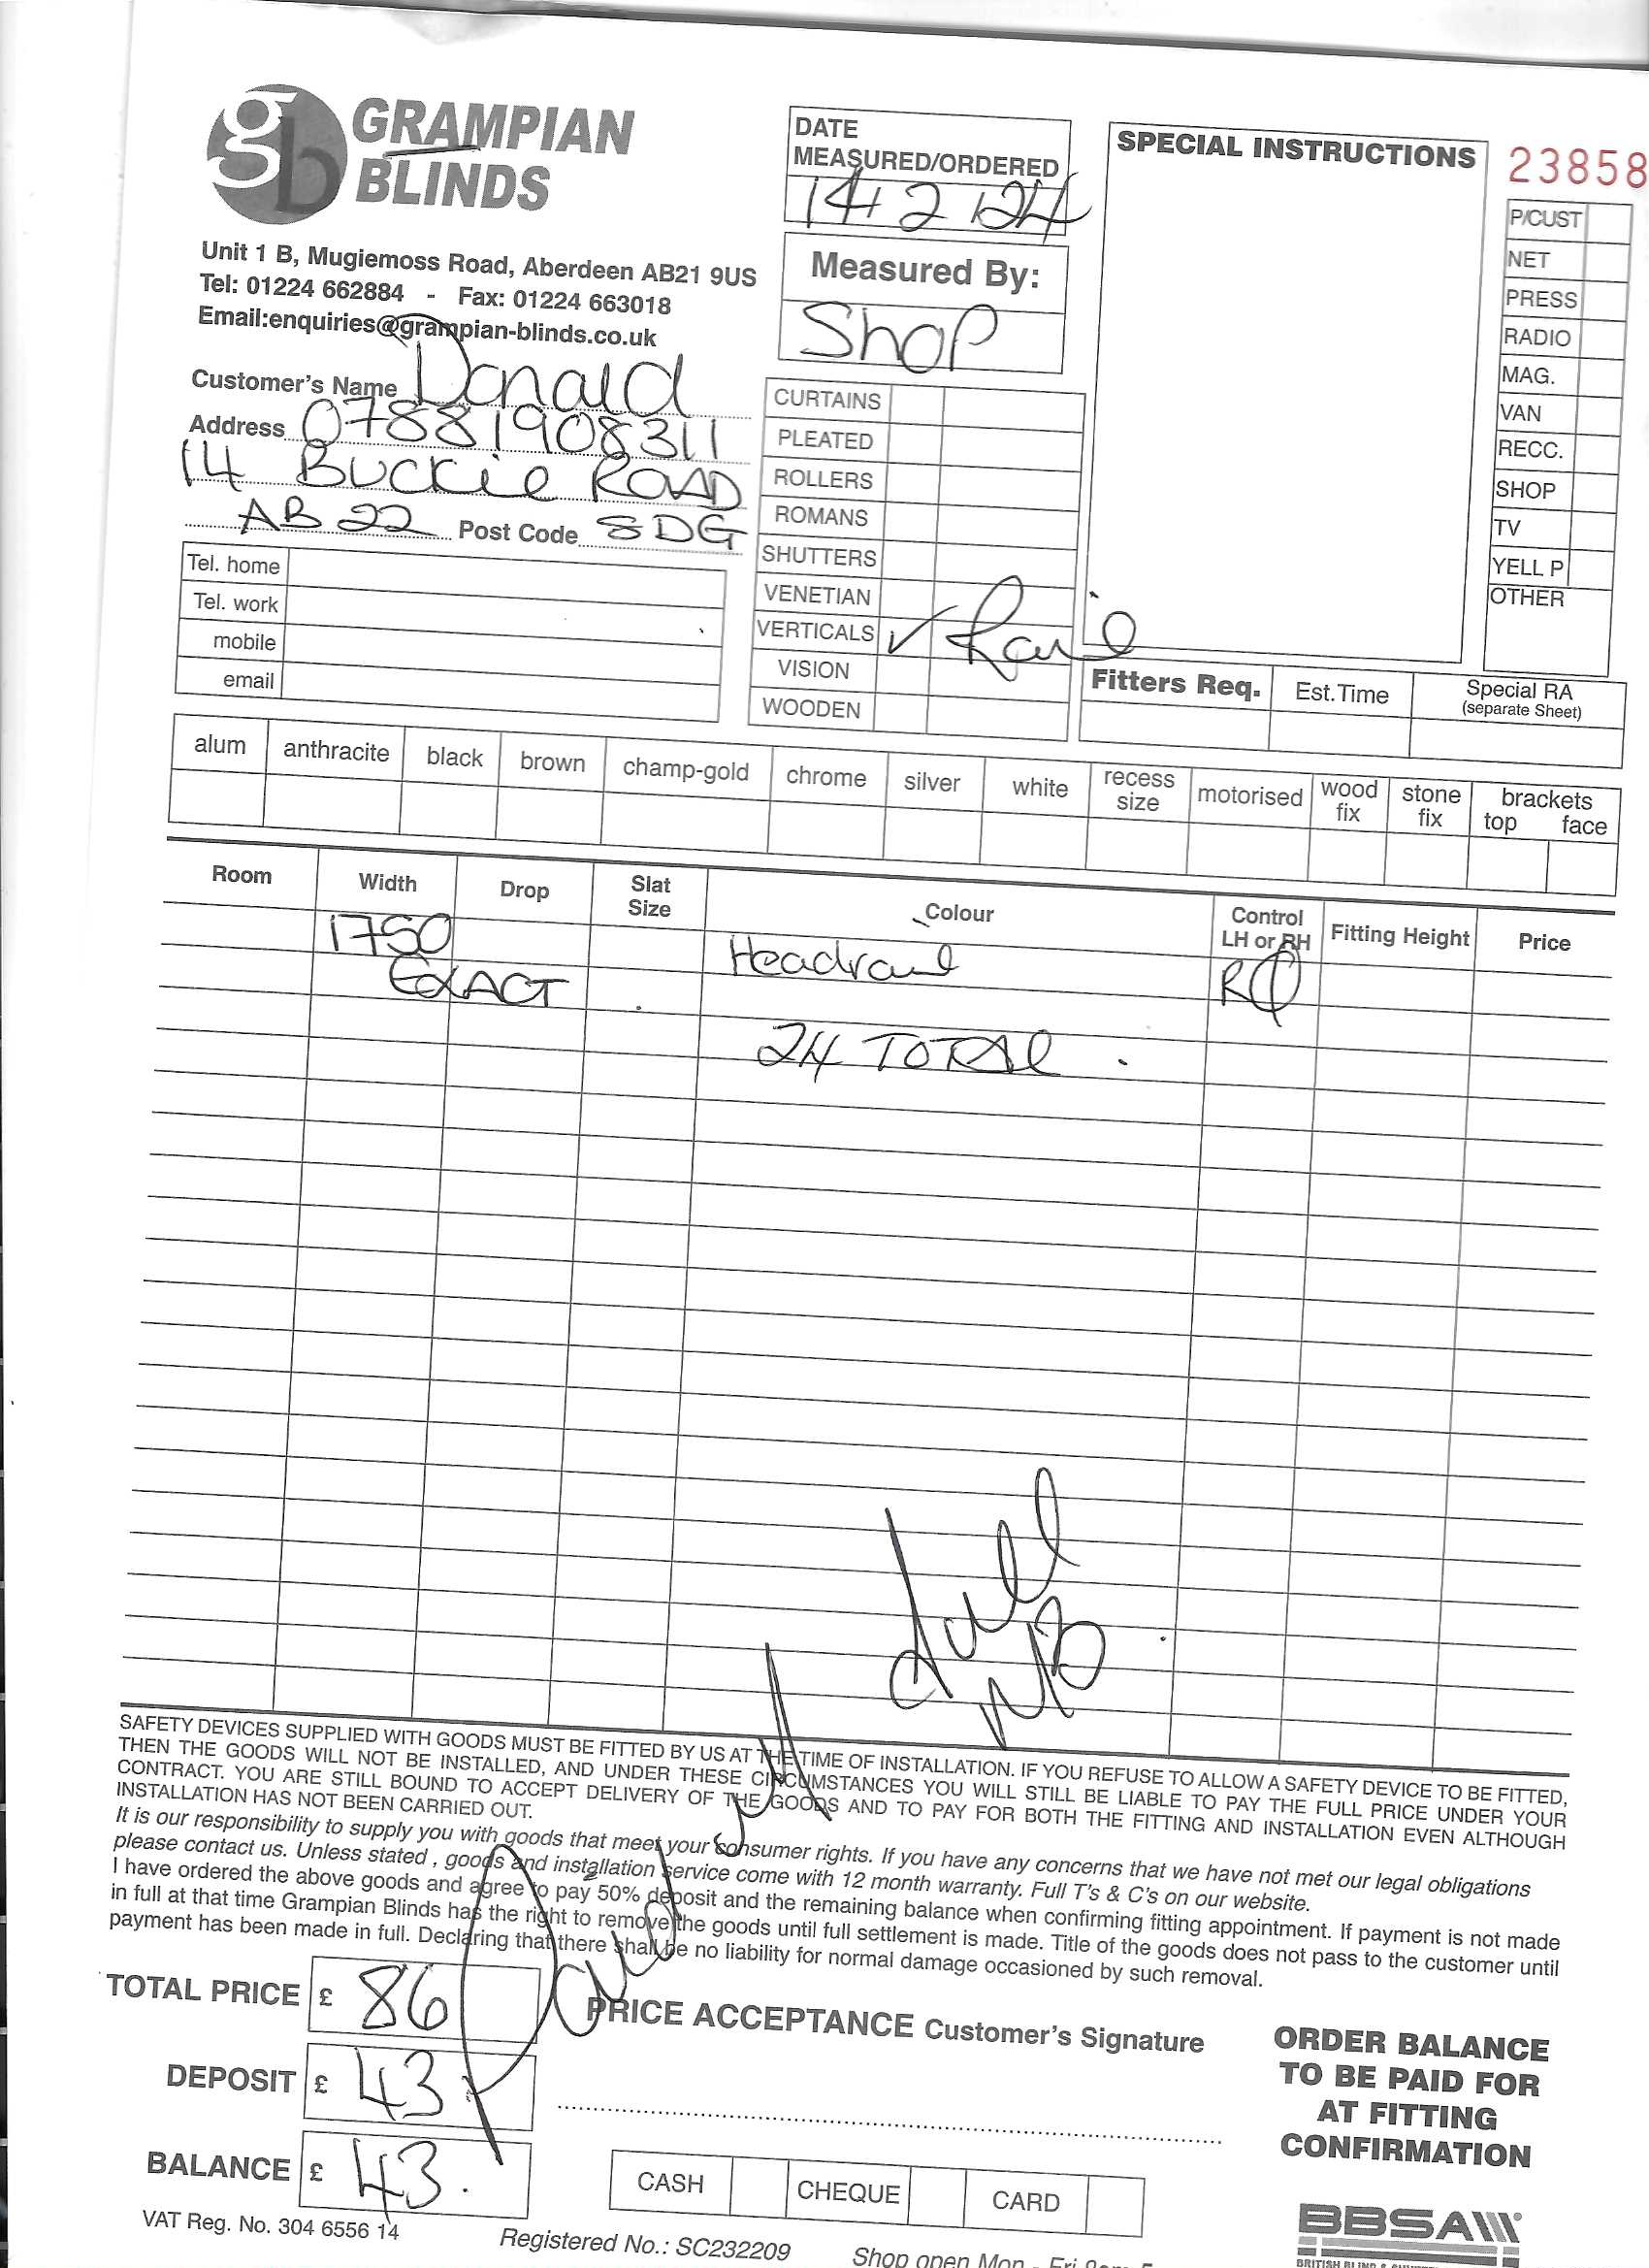 gb GRAMPIAN
BLINDS
Unit 1 B, Mugiemoss Road, Aberdeen AB21 9US
Tel: 01224 662884 - Fax: 01224 663018
Email:enquiries@grampian-blinds.co.uk
Customer's Name Donald
Address 07881908311
14 Buckie ROAD
AB22 Post Code 8DG
Tel. home
Tel. work
mobile
email
DATE
MEASURED/ORDERED
14 2 24
Measured By:
Shop
CURTAINS
PLEATED
ROLLERS
ROMANS
SHUTTERS
VENETIAN
VERTICALS ✓ Rail
VISION
WOODEN
SPECIAL INSTRUCTIONS
23858
P/CUST
NET
PRESS
RADIO
MAG.
VAN
RECC.
SHOP
TV
YELL P
OTHER
Fitters Req. Est.Time Special RA
(separate Sheet)
alum anthracite black brown champ-gold chrome silver white recess size motorised wood fix stone fix brackets top face
Room Width Drop Slat Size Colour Control LH or RH Fitting Height Price
1750 Headrail R
EXACT
24 TOTAL
Full
SAFETY DEVICES SUPPLIED WITH GOODS MUST BE FITTED BY US AT THE TIME OF INSTALLATION. IF YOU REFUSE TO ALLOW A SAFETY DEVICE TO BE FITTED,
THEN THE GOODS WILL NOT BE INSTALLED, AND UNDER THESE CIRCUMSTANCES YOU WILL STILL BE LIABLE TO PAY THE FULL PRICE UNDER YOUR
CONTRACT. YOU ARE STILL BOUND TO ACCEPT DELIVERY OF THE GOODS AND TO PAY FOR BOTH THE FITTING AND INSTALLATION EVEN ALTHOUGH
INSTALLATION HAS NOT BEEN CARRIED OUT.
It is our responsibility to supply you with goods that meet your consumer rights. If you have any concerns that we have not met our legal obligations
please contact us. Unless stated , goods and installation service come with 12 month warranty. Full T's & C's on our website.
I have ordered the above goods and agree to pay 50% deposit and the remaining balance when confirming fitting appointment. If payment is not made
in full at that time Grampian Blinds has the right to remove the goods until full settlement is made. Title of the goods does not pass to the customer until
payment has been made in full. Declaring that there shall be no liability for normal damage occasioned by such removal.
Paid
TOTAL PRICE £ 86
DEPOSIT £ 43
BALANCE £ 43.
PRICE ACCEPTANCE Customer's Signature
CASH CHEQUE CARD
ORDER BALANCE
TO BE PAID FOR
AT FITTING
CONFIRMATION
VAT Reg. No. 304 6556 14
Registered No.: SC232209
Shop open Mon - Fri
BBSA